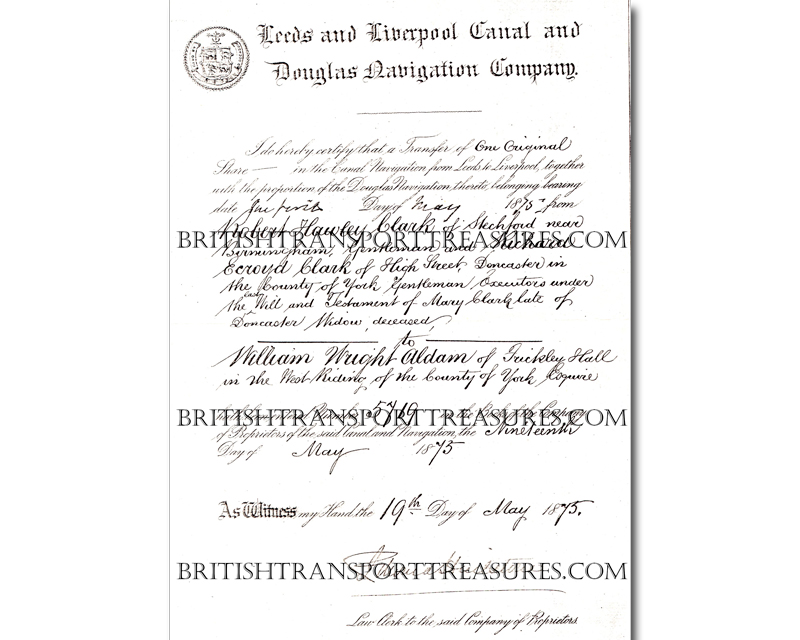 Leeds and Liverpool Canal and
Douglas Navigation Company.
I do hereby certify that a Transfer of One Original
Share in the Canal Navigation from Leeds to Liverpool, together
with the proportion of the Douglas Navigation, thereto belonging bearing
date the Day of May 1875 from
Robert Hawley Clark of Stechford near
BRITISHTRANSPORTTREASURES.COM
Birmingham, Gentleman and Richard
Ecroyd Clark of High Street, Doncaster in
the County of York Gentleman Executors under
the last Will and Testament of Mary Clark late of
Doncaster Widow, deceased,
to
William Wright Aldam of Frickley Hall
in the West Riding of the County of York Esquire
BRITISHTRANSPORTTREASURES.COM
of Proprietors of the said Canal and Navigation, the Nineteenth
Day of May 1875
As Witness my Hand, the 19th Day of May 1875.
BRITISHTRANSPORTTREASURES.COM
Law Clerk to the said Company of Proprietors.